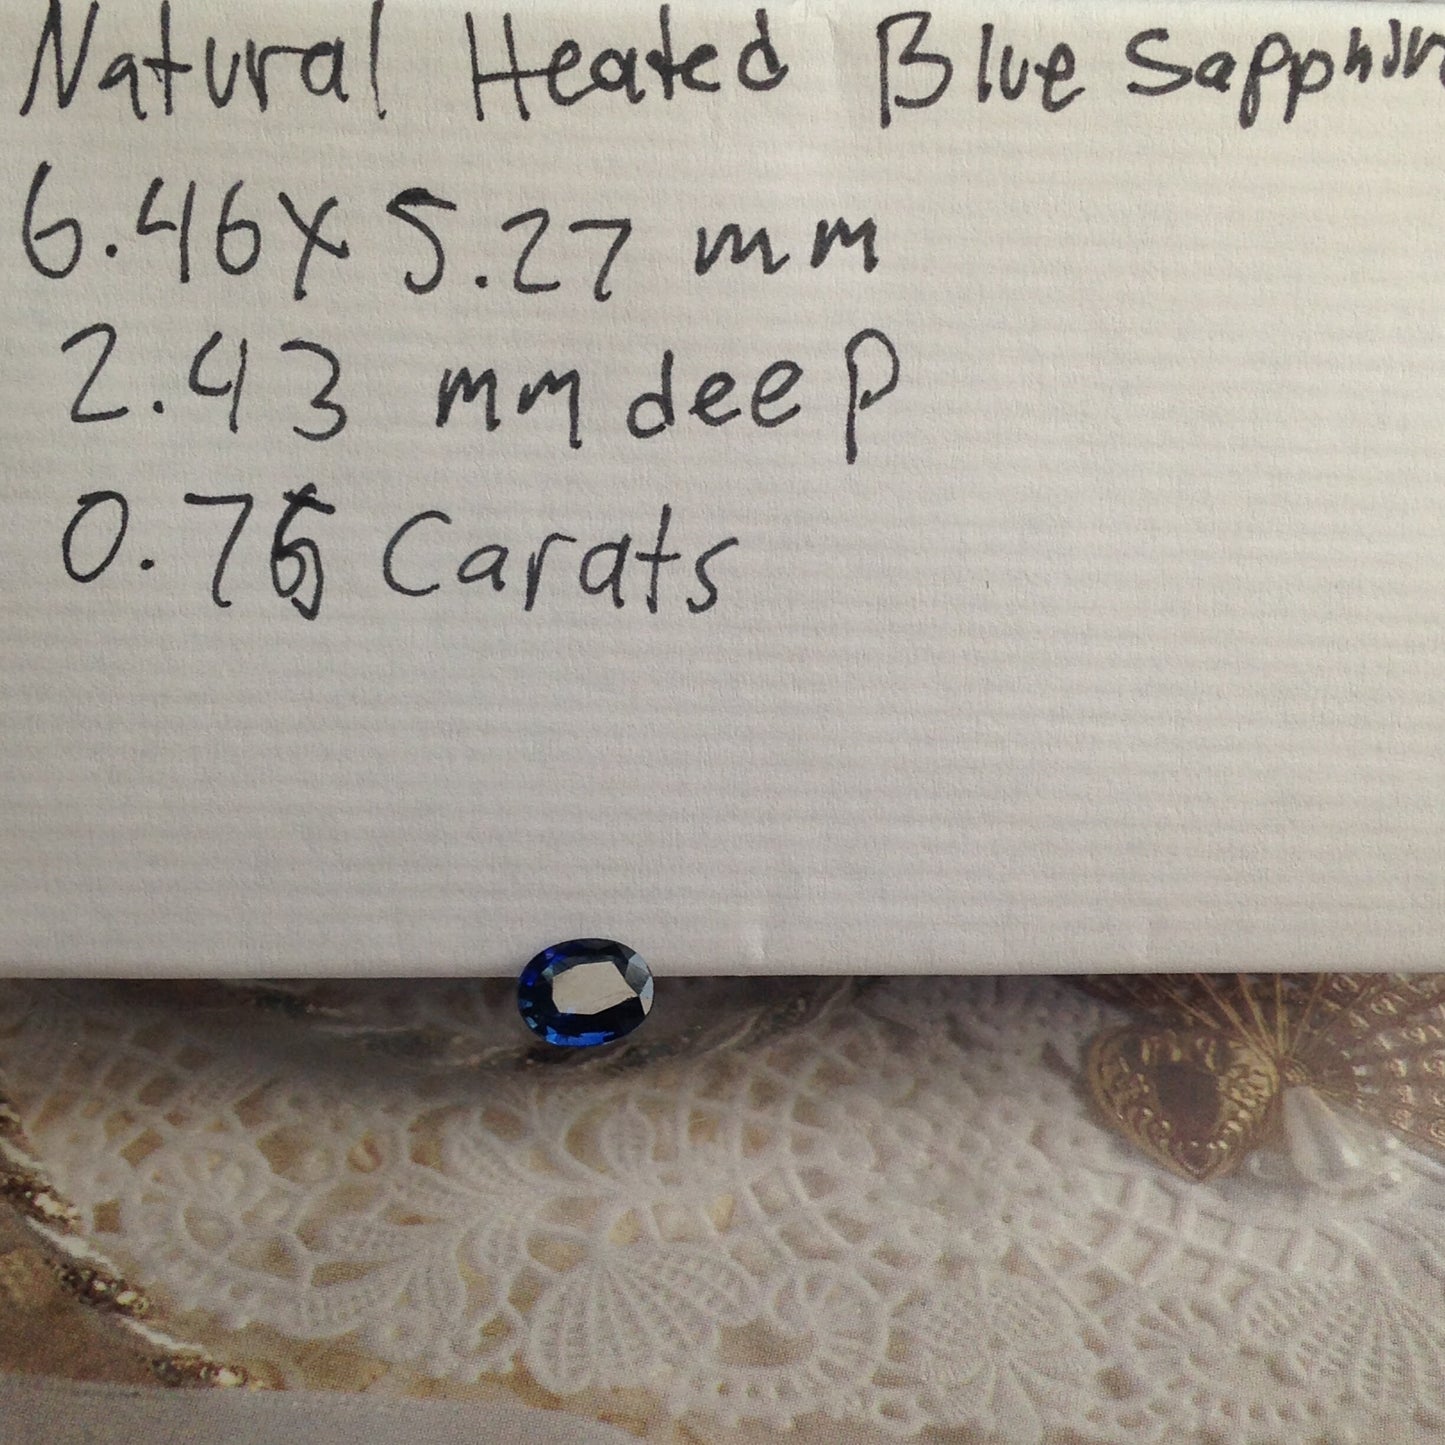 Natural Heated Blue Sapphir
6.46x 5.27 mm
2.43 mm deep
Carats